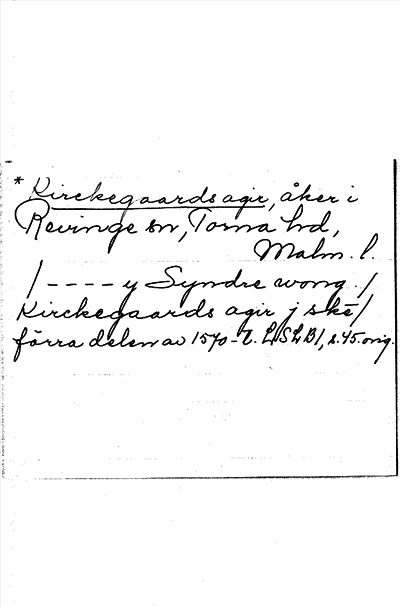 * Kirckegaardsagir, åker i
Revinge sn, Torna hd,
Malm. l.
/ - - - - y Syndre wong. /
Kirckegaards agir j skē /
förra delen av 1570-t. LSLB1, s.45.orig.